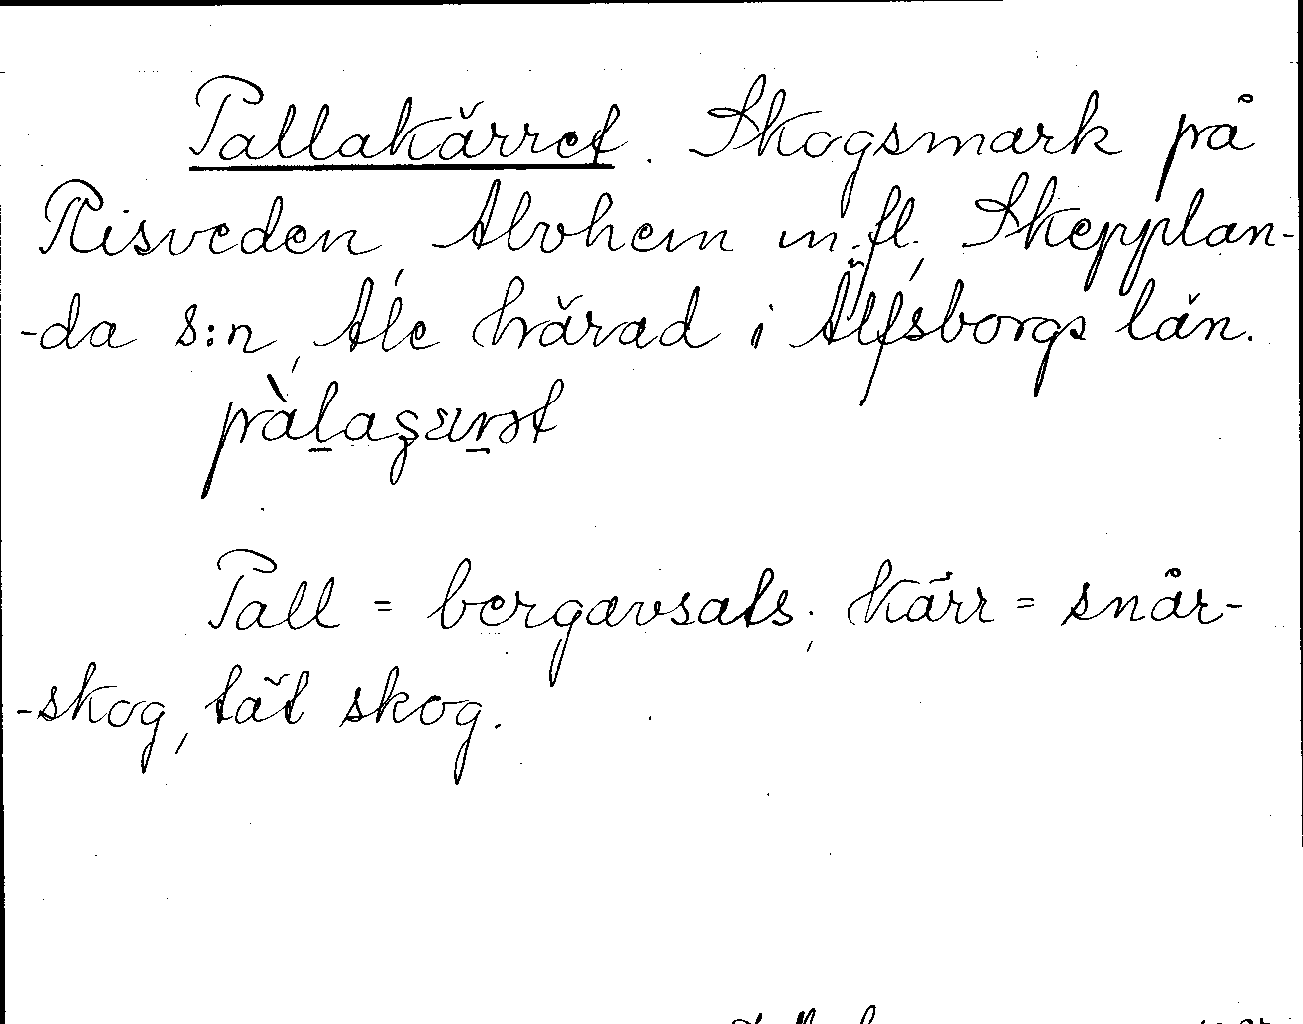 Pallakärret. Skogsmark på
Risveden, Alvhem m.fl., Skepplan-
-da s:n, Ale härad i Älfsborgs län.
Pall = bergavsats; kärr = snår-
-skog, tät skog.